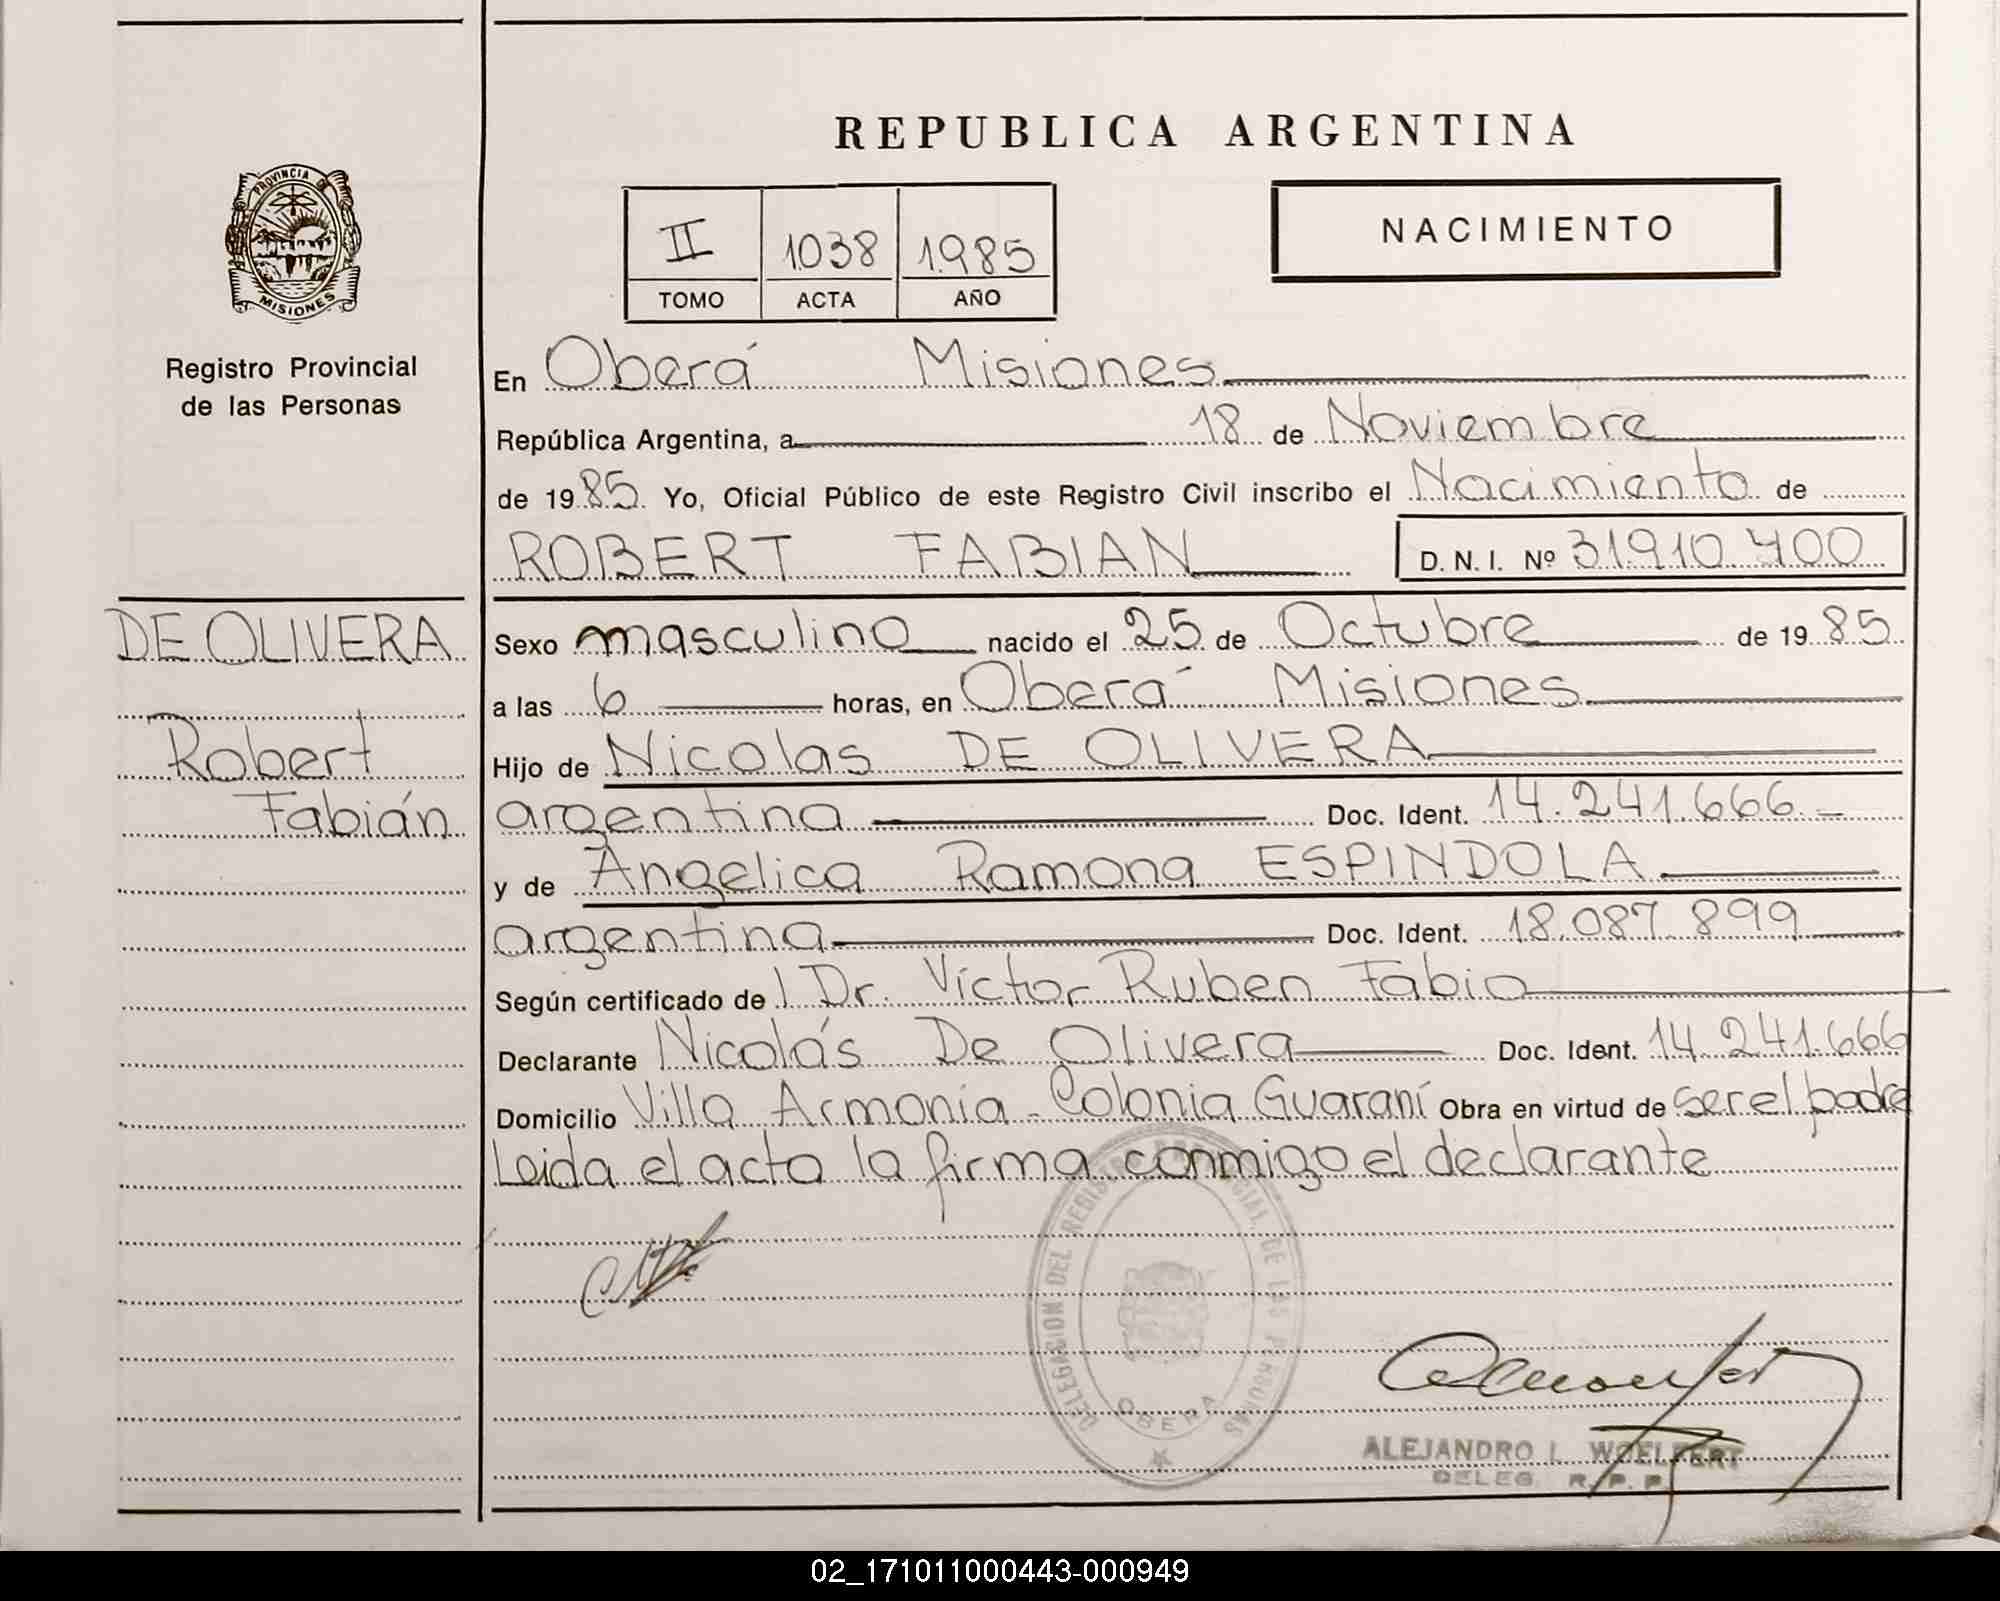 REPUBLICA ARGENTINA
PROVINCIA DE
MISIONES
Registro Provincial
de las Personas
II 1038 1.985
TOMO ACTA AÑO
NACIMIENTO
En Oberá Misiones
República Argentina, a 18 de Noviembre
de 1985. Yo, Oficial Público de este Registro Civil inscribo el Nacimiento de
ROBERT FABIAN D. N. I. Nº 31.910.400
DE OLIVERA
Robert
Fabián
Sexo masculino nacido el 25 de Octubre de 1985
a las 6 horas, en Oberá Misiones
Hijo de Nicolas DE OLIVERA
argentina Doc. Ident. 14.241.666.-
y de Angelica Ramona ESPINDOLA
argentina Doc. Ident. 18.087.899
Según certificado de l Dr. Víctor Ruben Fabio
Declarante Nicolás De Olivera Doc. Ident. 14.241.666
Domicilio Villa Armonía - Colonia Guaraní Obra en virtud de ser el padre
Leida el acta la firma conmigo el declarante
DELEGACION DEL REGISTRO PROVINCIAL DE LAS PERSONAS
OBERA
ALEJANDRO L. WOELFERT
DELEG. R. P. P.
02_171011000443-000949